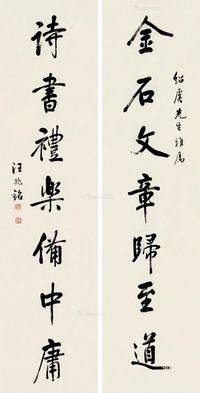 绍虞先生雅属
金石文章歸至道
诗書禮樂備中庸
汪兆銘